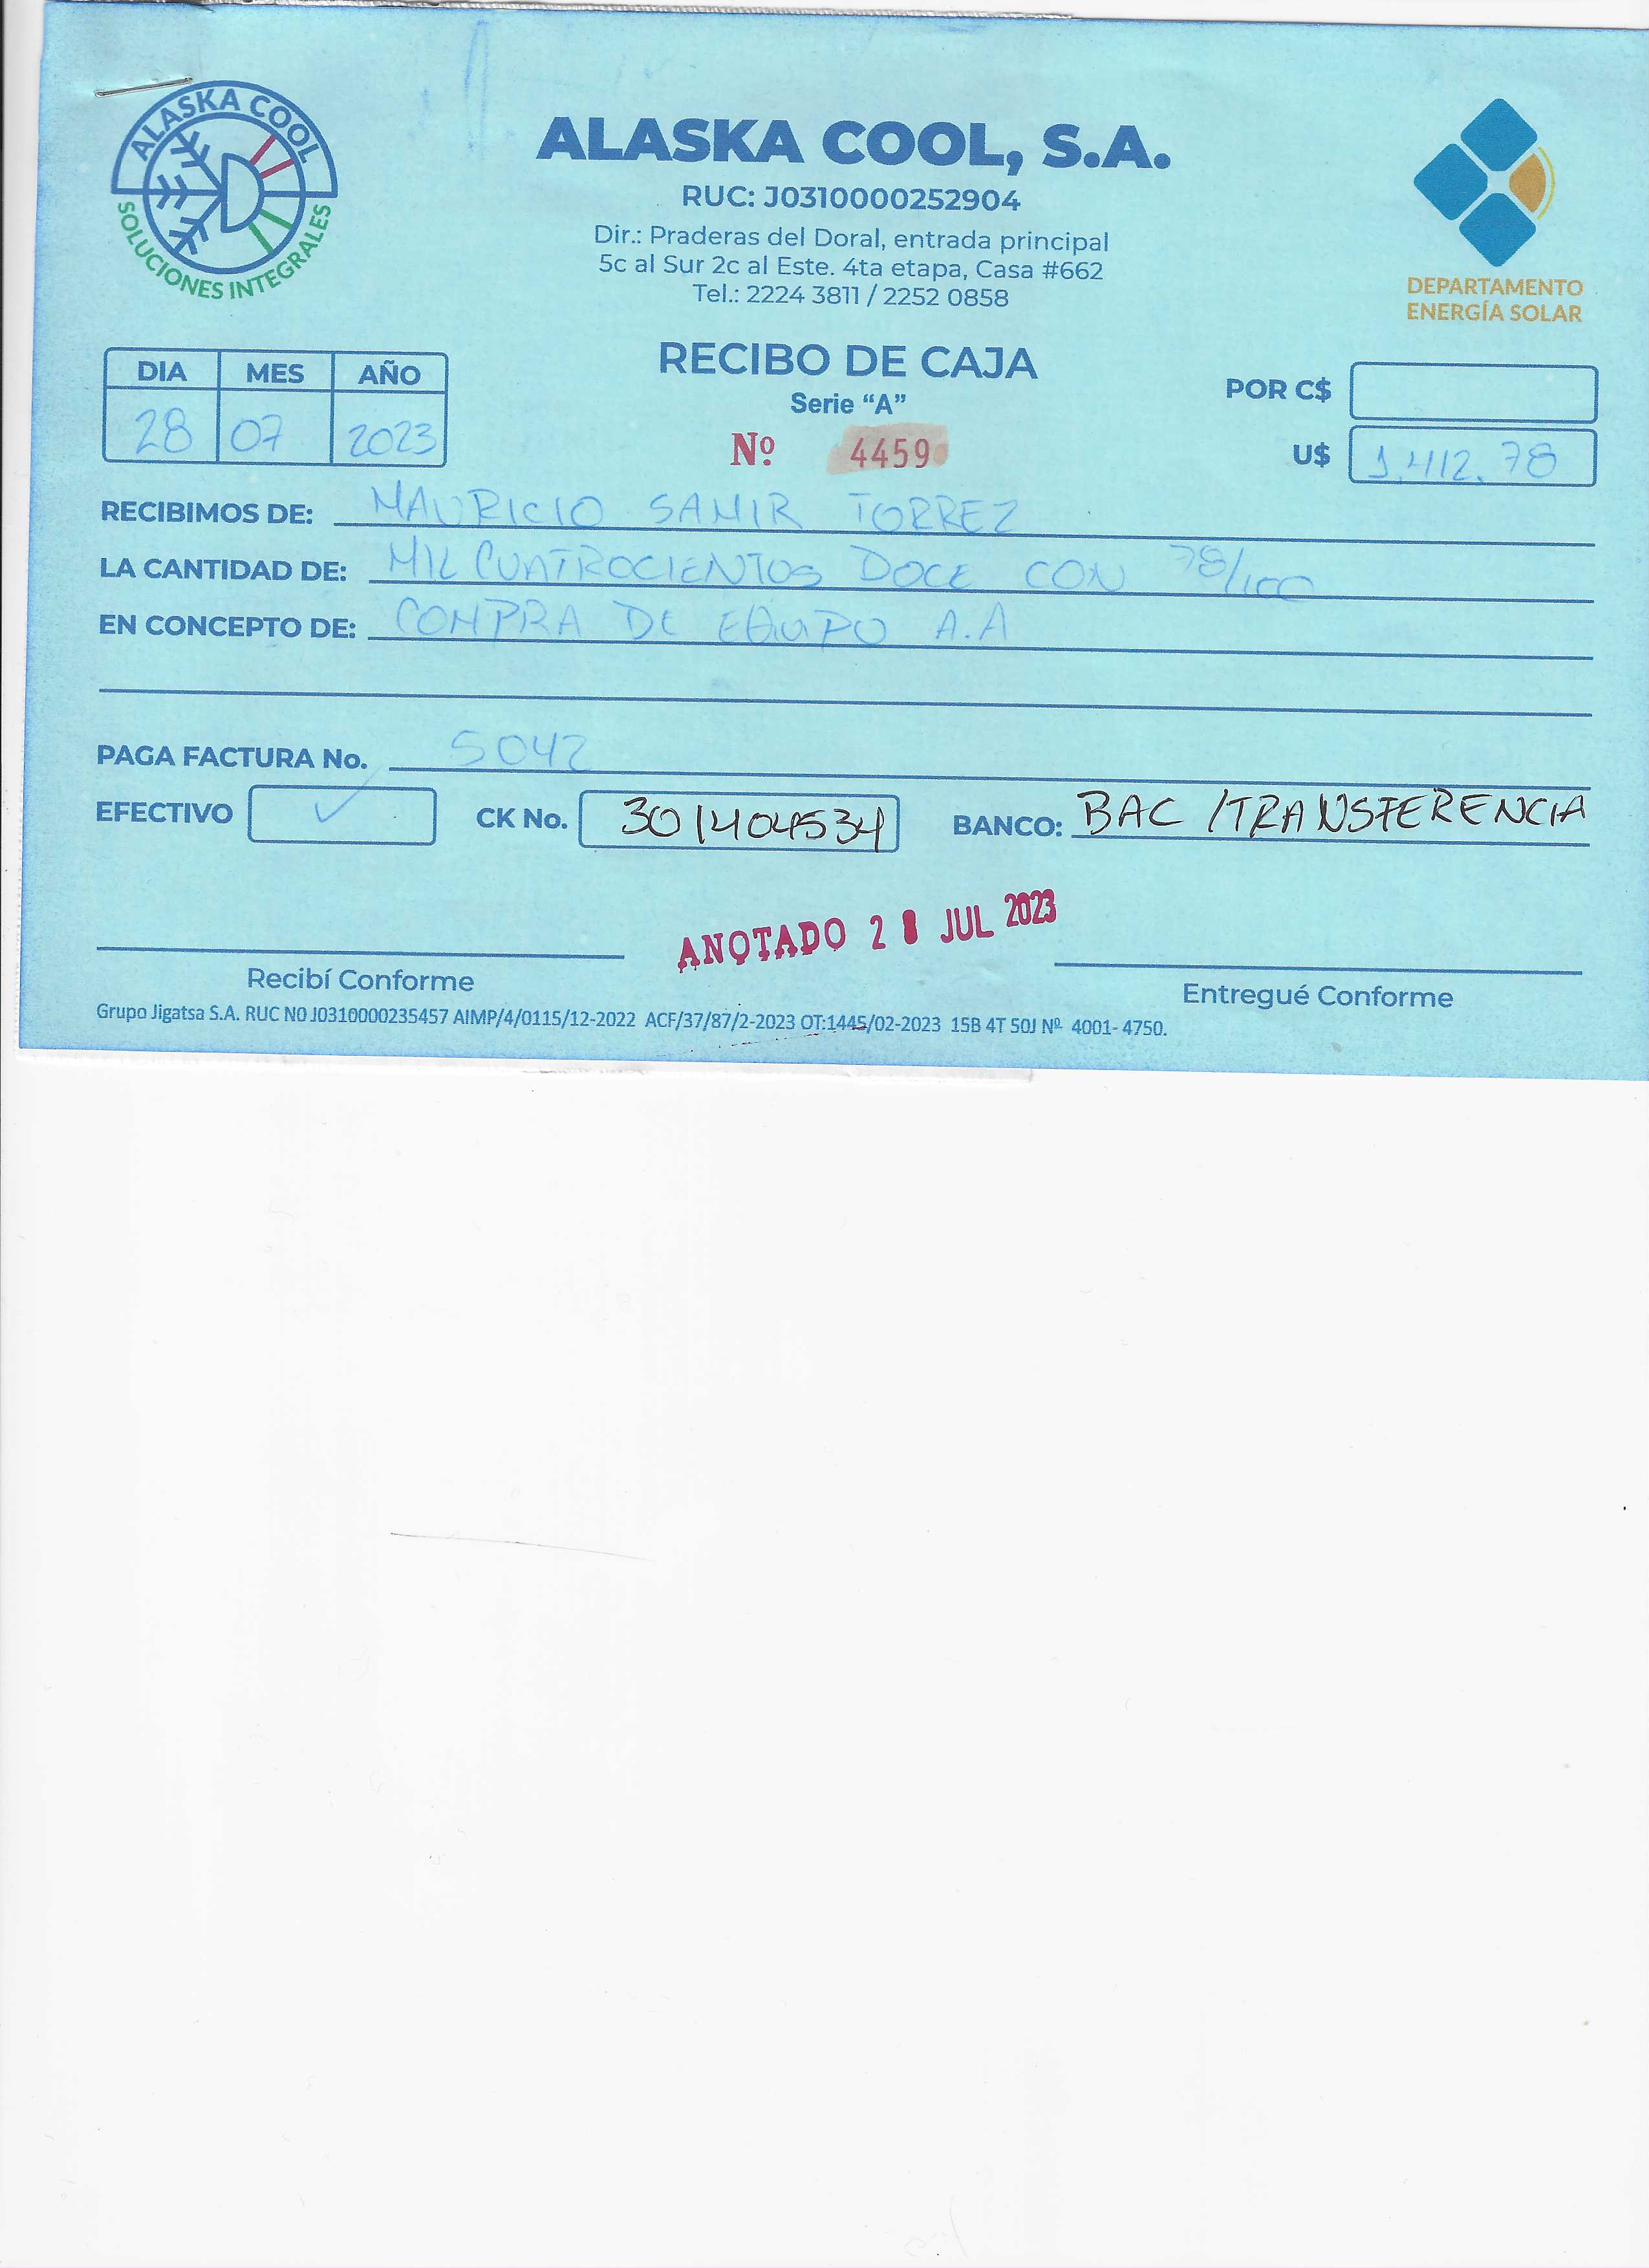 ALASKA COOL
SOLUCIONES INTEGRALES
ALASKA COOL, S.A.
RUC: J0310000252904
Dir.: Praderas del Doral, entrada principal
5c al Sur 2c al Este. 4ta etapa, Casa #662
Tel.: 2224 3811 / 2252 0858
DEPARTAMENTO
ENERGÍA SOLAR
DIA MES AÑO
28 07 2023
RECIBO DE CAJA
Serie “A”
Nº 4459
POR C$
U$ 1.412.78
RECIBIMOS DE: MAURICIO SAMIR TORREZ
LA CANTIDAD DE: MIL CUATROCIENTOS DOCE CON 78/100
EN CONCEPTO DE: COMPRA DE EQUIPO A.A
PAGA FACTURA No. 5042
EFECTIVO ✓ CK No. 301404534 BANCO: BAC /TRANSFERENCIA
ANOTADO 28 JUL 2023
Recibí Conforme
Entregué Conforme
Grupo Jigatsa S.A. RUC N0 J0310000235457 AIMP/4/0115/12-2022 ACF/37/87/2-2023 OT:1445/02-2023 15B 4T 50J Nº 4001- 4750.